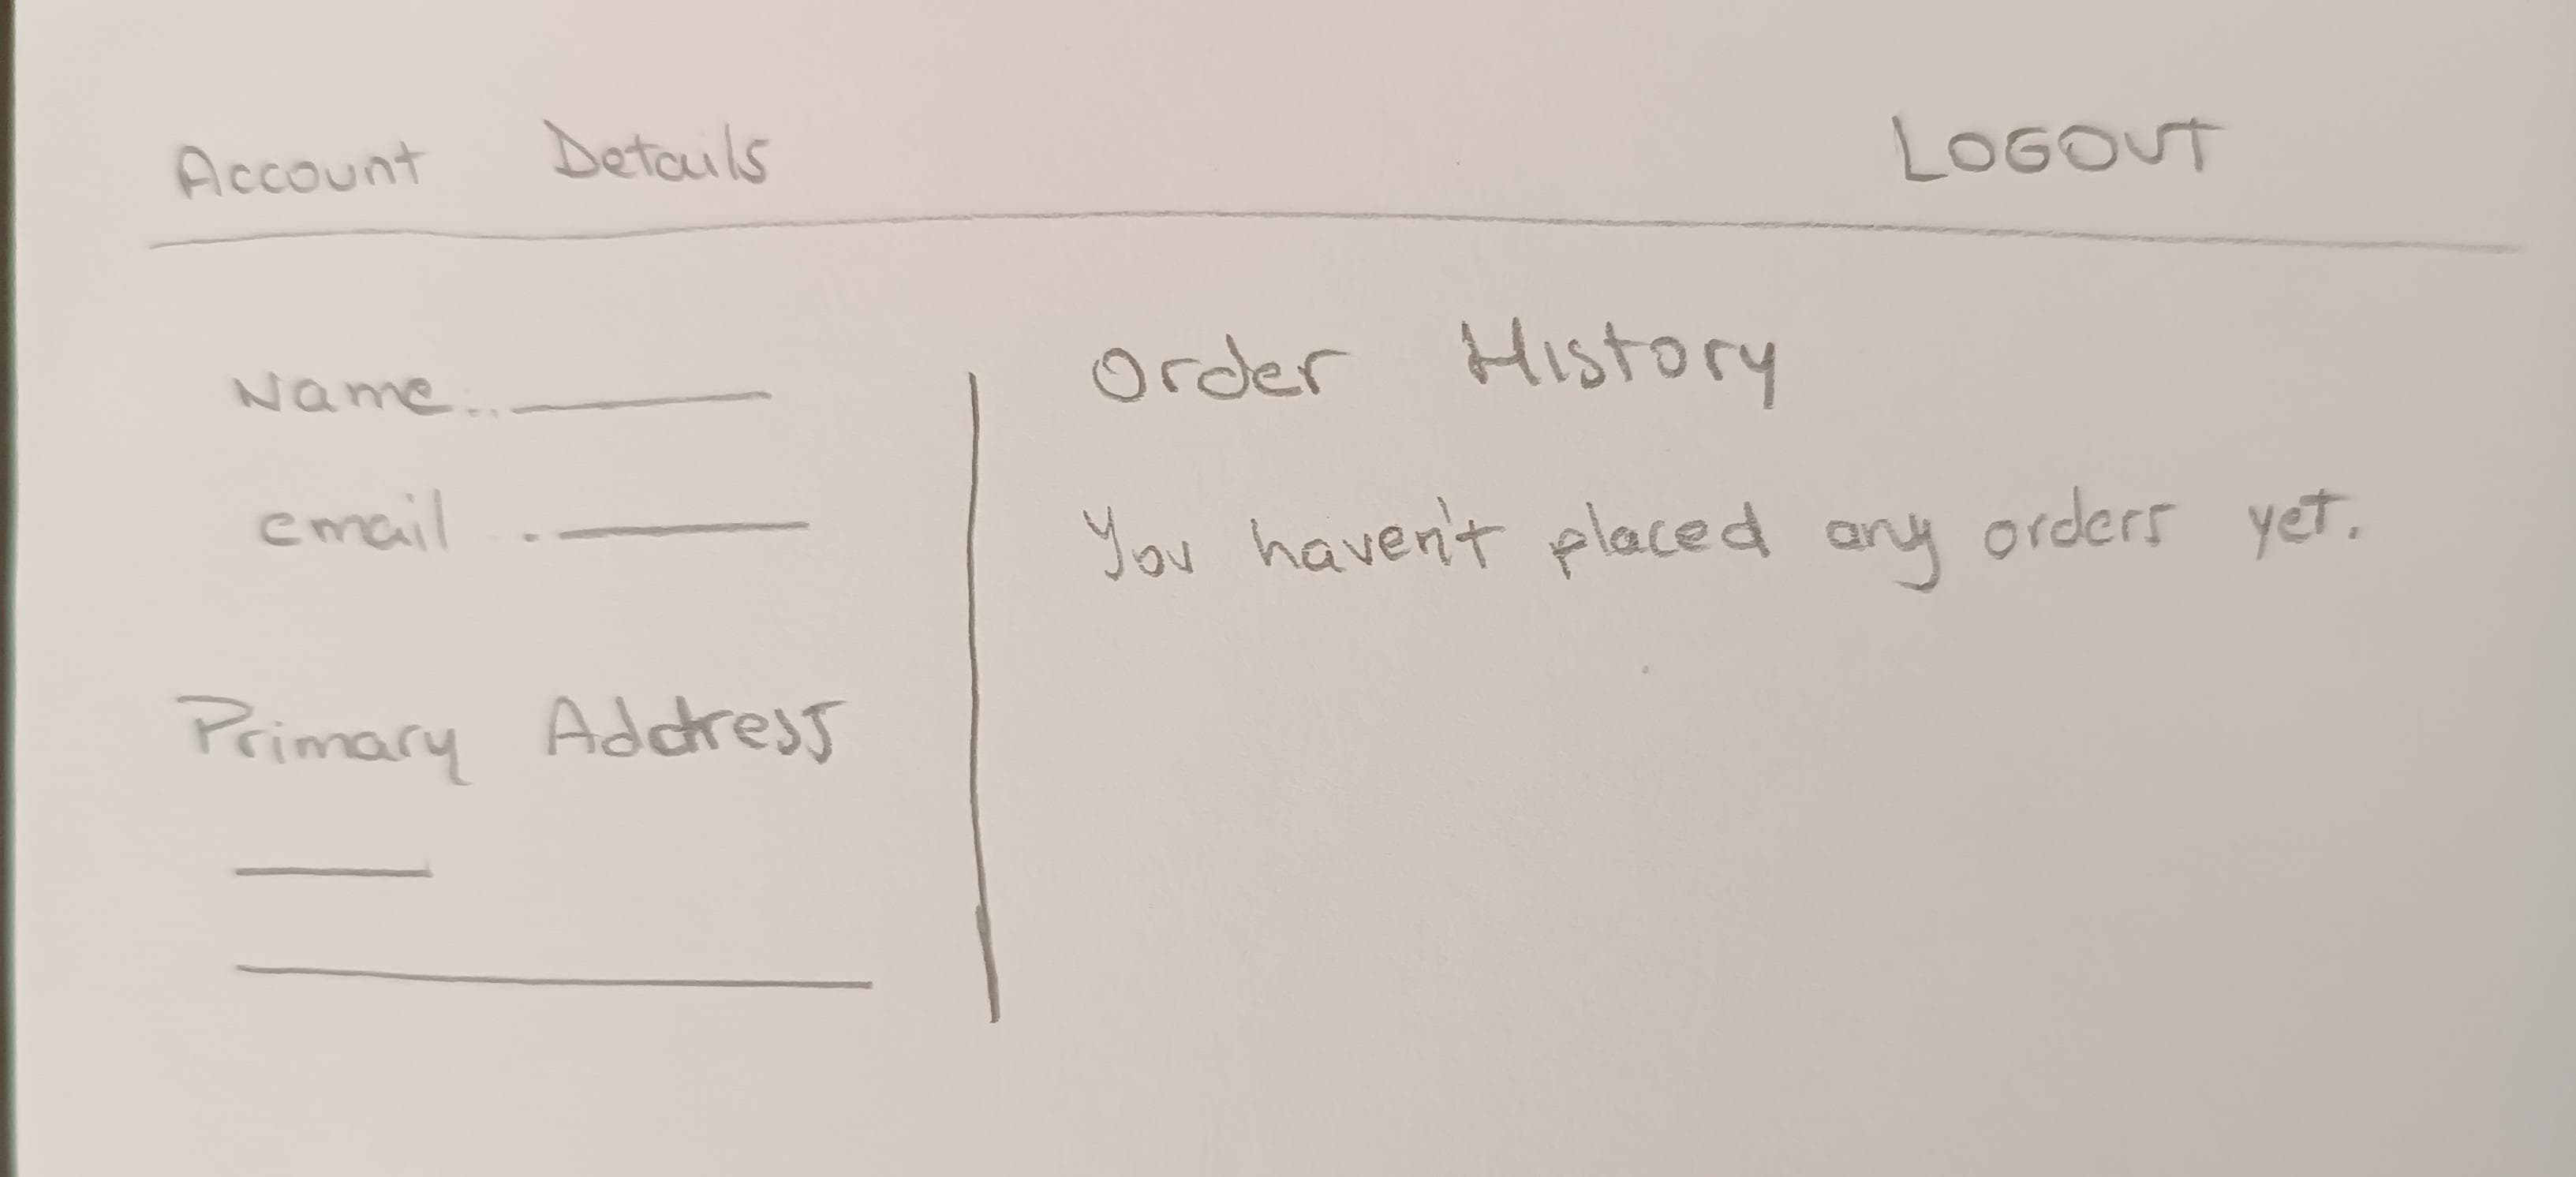 Account Details LOGOUT
Name..
email .
Primary Address
Order History
You haven't placed any orders yet.